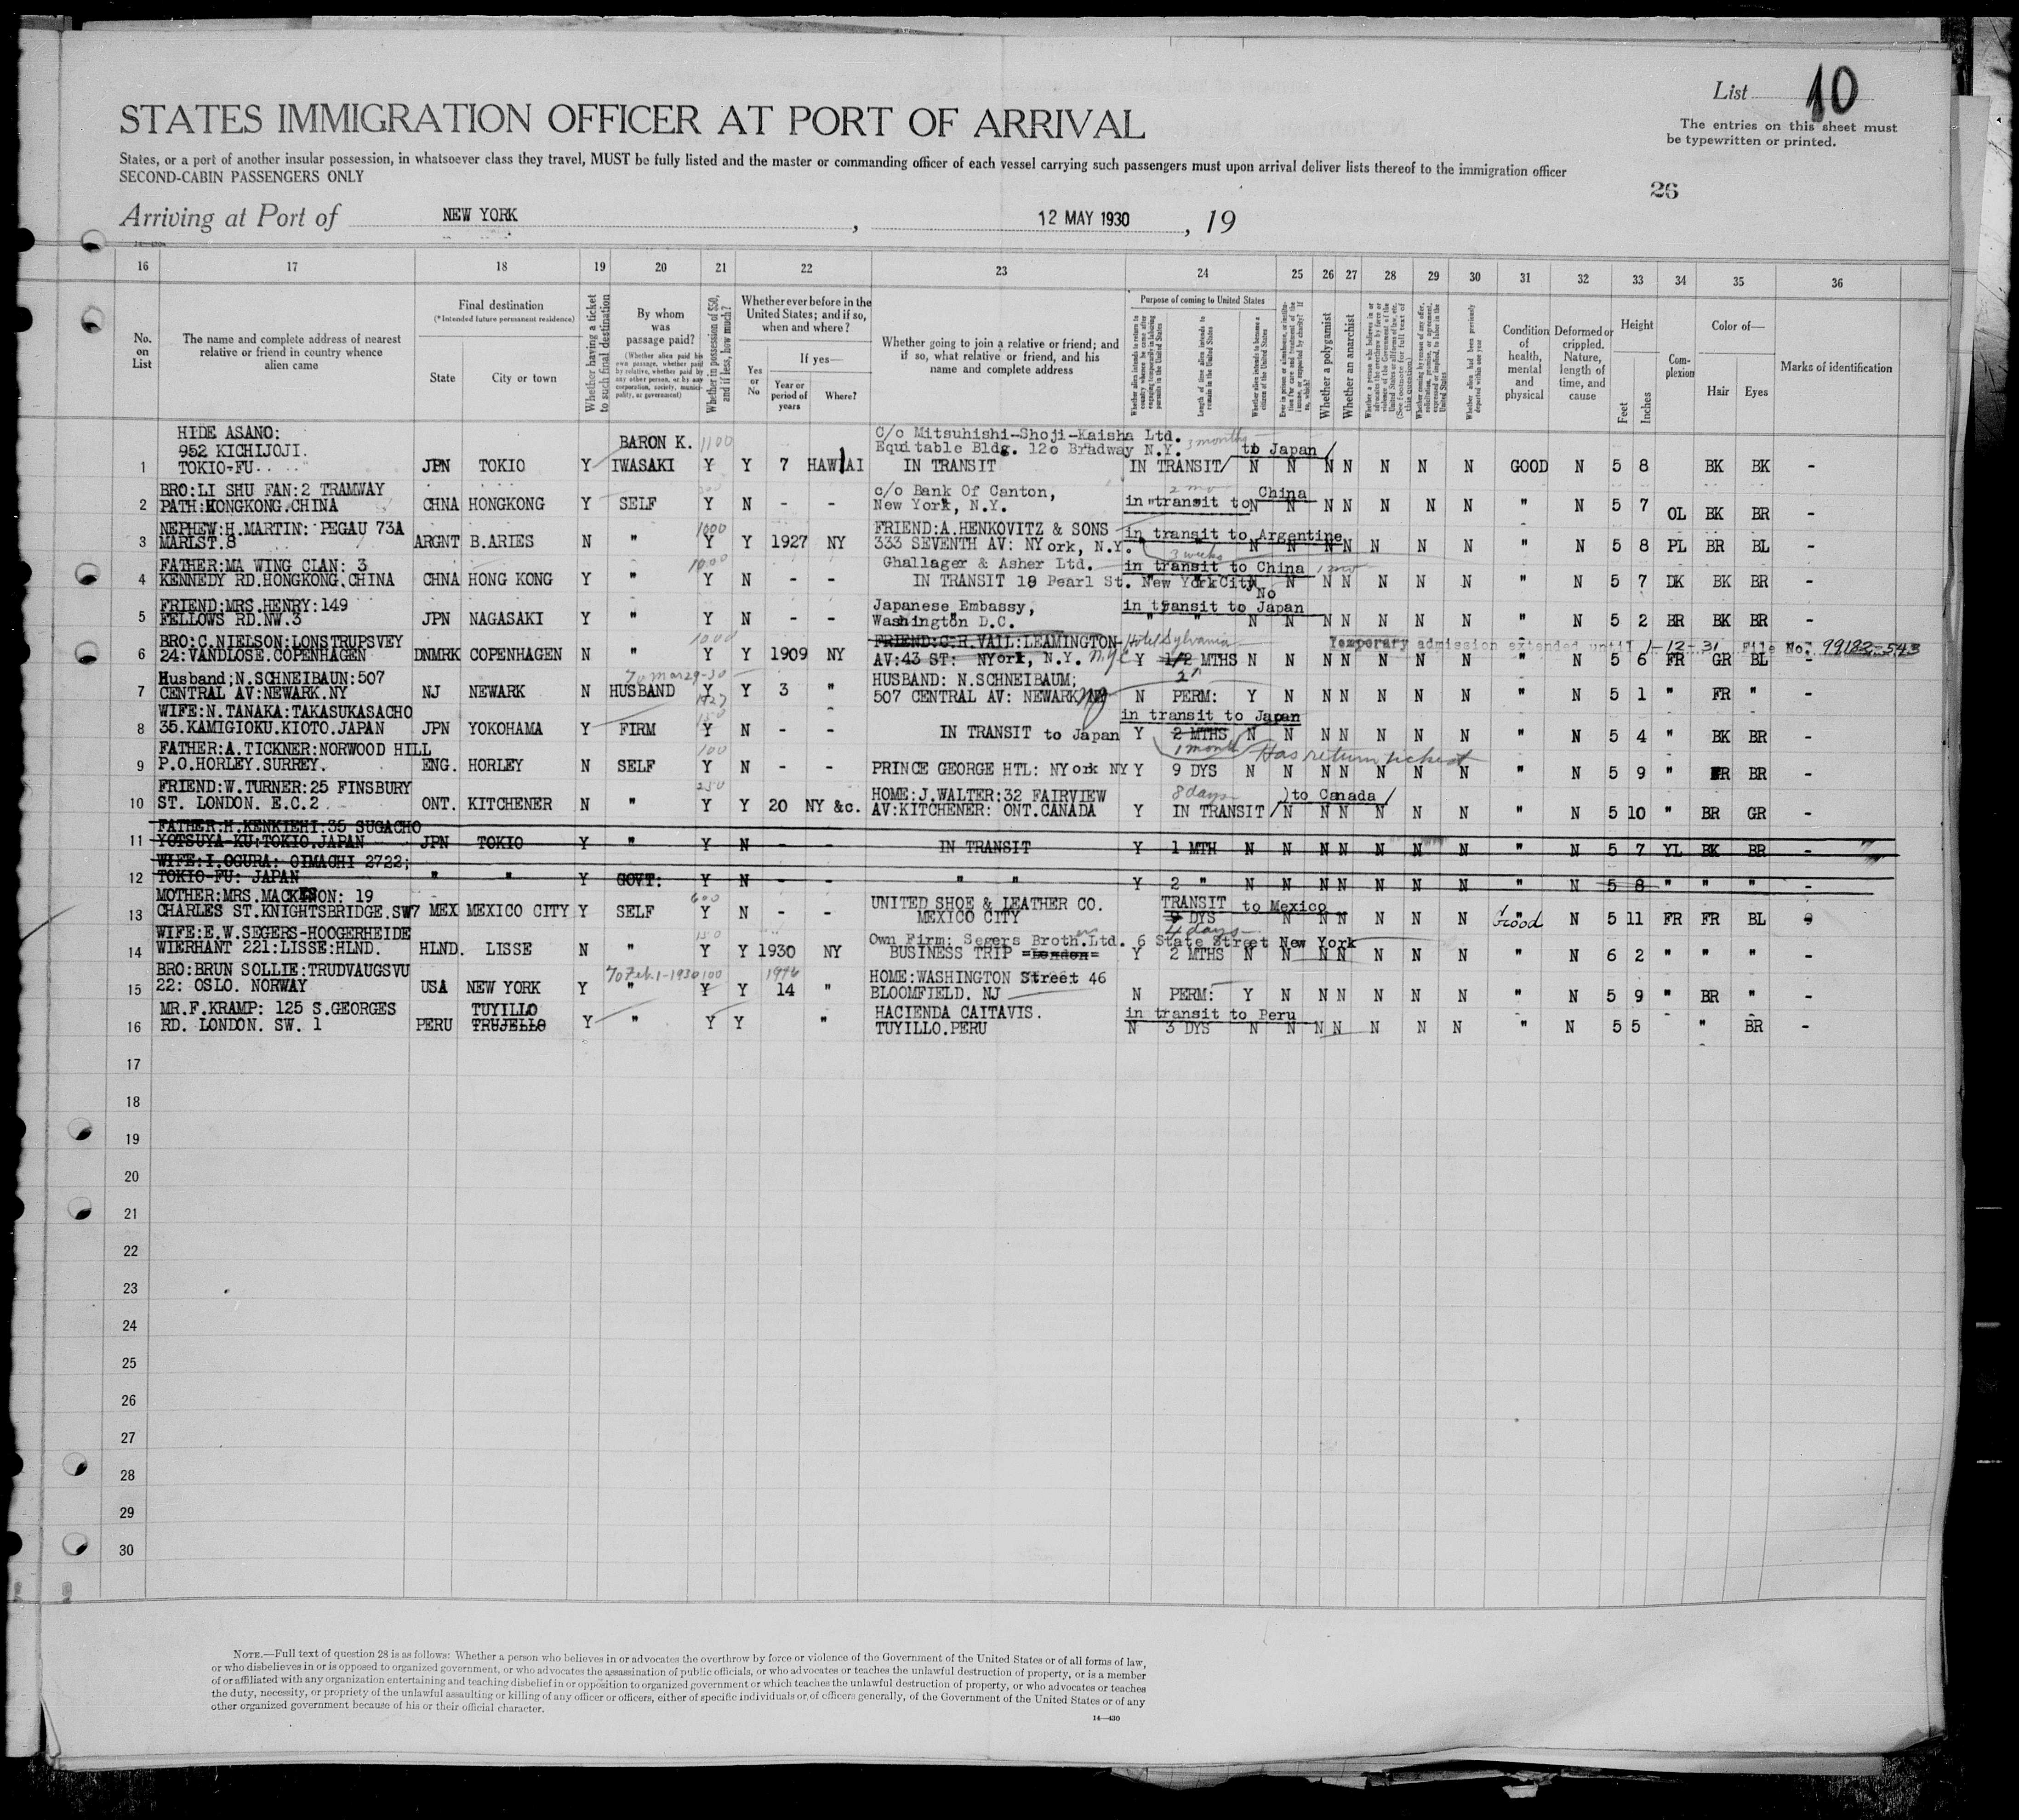 List 10
The entries on this sheet must
be typewritten or printed.
STATES IMMIGRATION OFFICER AT PORT OF ARRIVAL
States, or a port of another insular possession, in whatsoever class they travel, MUST be fully listed and the master or commanding officer of each vessel carrying such passengers must upon arrival deliver lists thereof to the immigration officer
SECOND-CABIN PASSENGERS ONLY
26
Arriving at Port of NEW YORK , 12 MAY 1930 , 19
16 17 18 19 20 21 22 23 24 25 26 27 28 29 30 31 32 33 34 35 36
No. on List
The name and complete address of nearest relative or friend in country whence alien came
Final destination
(*Intended future permanent residence)
State
City or town
Whether having a ticket to such final destination
By whom was passage paid?
(Whether alien paid his own passage, whether paid by relative, whether paid by any other person, or by any corporation, society, municipality, or government)
Whether in possession of $50, and if less, how much?
Whether ever before in the United States; and if so, when and where?
Yes or No
If yes—
Year or period of years
Where?
Whether going to join a relative or friend; and if so, what relative or friend, and his name and complete address
Purpose of coming to United States
Length of time alien intends to remain in the United States
Whether alien intends to become a citizen of the United States
Whether a polygamist
Whether an anarchist
Condition of health, mental and physical
Deformed or crippled. Nature, length of time, and cause
Height
Feet
Inches
Complexion
Color of—
Hair
Eyes
Marks of identification
HIDE ASANO:
952 KICHIJOJI. BARON K. 1100 C/o Mitsuhishi-Shoji-Kaisha Ltd. 3 months
Equitable Bldg. 120 Bradway N.Y. to Japan
1 TOKIO-FU.. JPN TOKIO Y IWASAKI Y Y 7 HAWIAI IN TRANSIT IN TRANSIT N N N N N N N GOOD N 5 8 BK BK -
BRO:LI SHU FAN:2 TRAMWAY c/o Bank Of Canton, 2 mo China
2 PATH:HONGKONG.CHINA CHNA HONGKONG Y SELF Y N - - New York, N.Y. in transit to N N N N N N N " N 5 7 OL BK BR -
NEPHEW:H.MARTIN: PEGAU 73A 1000 FRIEND:A.HENKOVITZ & SONS in transit to Argentine
3 MARLST.8 ARGNT B.ARIES N " Y Y 1927 NY 333 SEVENTH AV: NYork, N.Y. " N N N N N N N " N 5 8 PL BR BL -
FATHER:MA WING CLAN: 3 1000 Ghallager & Asher Ltd. 3 weeks in transit to China 1 mo
4 KENNEDY RD.HONGKONG.CHINA CHNA HONG KONG Y " Y N - - IN TRANSIT 18 Pearl St. New York City N N N N N N N " N 5 7 DK BK BR -
No
FRIEND:MRS.HENRY:149 Japanese Embassy, in transit to Japan
5 FELLOWS RD.NW.3 JPN NAGASAKI Y " Y N - - Washington D.C. " " N N N N N N N " N 5 2 BR BK BR -
BRO:C.NIELSON:LONSTRUPSVEY 1000 FRIEND:C.H.VAIL:LEAMINGTON Hotel Sylvania Temporary admission extended until 1-12-31 File No. 99182-543
6 24:VANDLOSE.COPENHAGEN DNMRK COPENHAGEN N " Y Y 1909 NY AV:43 ST: NYork, N.Y. N.Y.C Y 1/2 MTHS N N N N N N N " N 5 6 FR GR BL -
Husband;N.SCHNEIBAUN:507 HUSBAND: N.SCHNEIBAUM;
7 CENTRAL AV:NEWARK.NY NJ NEWARK N HUSBAND Y Y 3 " 507 CENTRAL AV: NEWARK NJ N PERM: Y N N N N N N " N 5 1 " FR " -
1927
WIFE:N.TANAKA:TAKASUKASACHO 150 in transit to Japan
8 35.KAMIGIOKU.KIOTO.JAPAN JPN YOKOHAMA Y FIRM Y N - - IN TRANSIT to Japan Y 2 MTHS N N N N N N N " N 5 4 " BK BR -
FATHER:A.TICKNER:NORWOOD HILL 100 1 month Has return ticket
9 P.O.HORLEY.SURREY. ENG. HORLEY N SELF Y N - - PRINCE GEORGE HTL: NYork NY Y 9 DYS N N N N N N N " N 5 9 " BR BR -
FRIEND:W.TURNER:25 FINSBURY 250 HOME:J.WALTER:32 FAIRVIEW 8 days to Canada
10 ST. LONDON. E.C.2 ONT. KITCHENER N " Y Y 20 NY &c. AV:KITCHENER: ONT.CANADA Y IN TRANSIT N N N N N N " N 5 10 " BR GR -
FATHER:H.KENKIEHI:35 SUGACHO
11 YOTSUYA-KU:TOKIO.JAPAN JPN TOKIO Y " Y N - - IN TRANSIT Y 1 MTH N N N N N N N " N 5 7 YL BK BR -
WIFE:I.OGURA: OIMACHI 2722;
12 TOKIO-FU: JAPAN " " Y GOVT: Y N - - " " Y 2 " N N N N N N N " N 5 8 " " " -
MOTHER:MRS.MACKESON: 19 600 UNITED SHOE & LEATHER CO. TRANSIT to Mexico
13 CHARLES ST.KNIGHTSBRIDGE.SW7 MEX MEXICO CITY Y SELF Y N - - MEXICO CITY 9 DYS N N N N N N Good N 5 11 FR FR BL
4 days
WIFE:E.W.SEGERS-HOOGERHEIDE 150 Own Firm: Segers Broth.Ltd. 6 State Street New York
14 WIERHANT 221:LISSE:HLND. HLND. LISSE N " Y Y 1930 NY BUSINESS TRIP =London= Y 2 MTHS N N N N N N N " N 6 2 " " " -
BRO:BRUN SOLLIE:TRUDVAUGSVU Feb.1-1930 100 1916 HOME:WASHINGTON Street 46
15 22: OSLO. NORWAY USA NEW YORK Y " Y Y 14 " BLOOMFIELD. NJ N PERM: Y N N N N N N " N 5 9 " BR " -
MR.F.KRAMP: 125 S.GEORGES TUYILLO HACIENDA CAITAVIS. in transit to Peru
16 RD. LONDON. SW. 1 PERU TRUJELLO Y " Y Y " TUYILLO.PERU N 3 DYS N N N N N N N " N 5 5 " BR -
17
18
19
20
21
22
23
24
25
26
27
28
29
30
NOTE.—Full text of question 28 is as follows: Whether a person who believes in or advocates the overthrow by force or violence of the Government of the United States or of all forms of law,
or who disbelieves in or is opposed to organized government, or who advocates the assassination of public officials, or who advocates or teaches the unlawful destruction of property, or is a member
of or affiliated with any organization entertaining and teaching disbelief in or opposition to organized government or which teaches the unlawful destruction of property, or who advocates or teaches
the duty, necessity, or propriety of the unlawful assaulting or killing of any officer or officers, either of specific individuals or of officers generally, of the Government of the United States or of any
other organized government because of his or their official character.
14—430